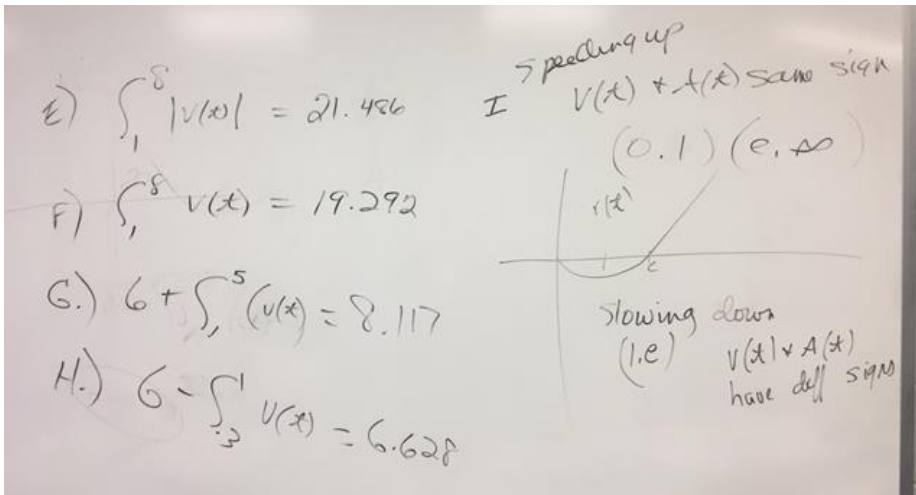 E) ∫₁⁸ |V(t)| = 21.486
F) ∫₁⁸ V(t) = 19.292
G.) 6 + ∫₁⁵ (V(t) = 8.117
H.) 6 - ∫.₃¹ V(t) = 6.628
I speeding up
V(t) + A(t) same sign
(0.1) (e, ∞)
v(t)
1 e
slowing down
(1.e) V(t) & A(t)
have diff signs